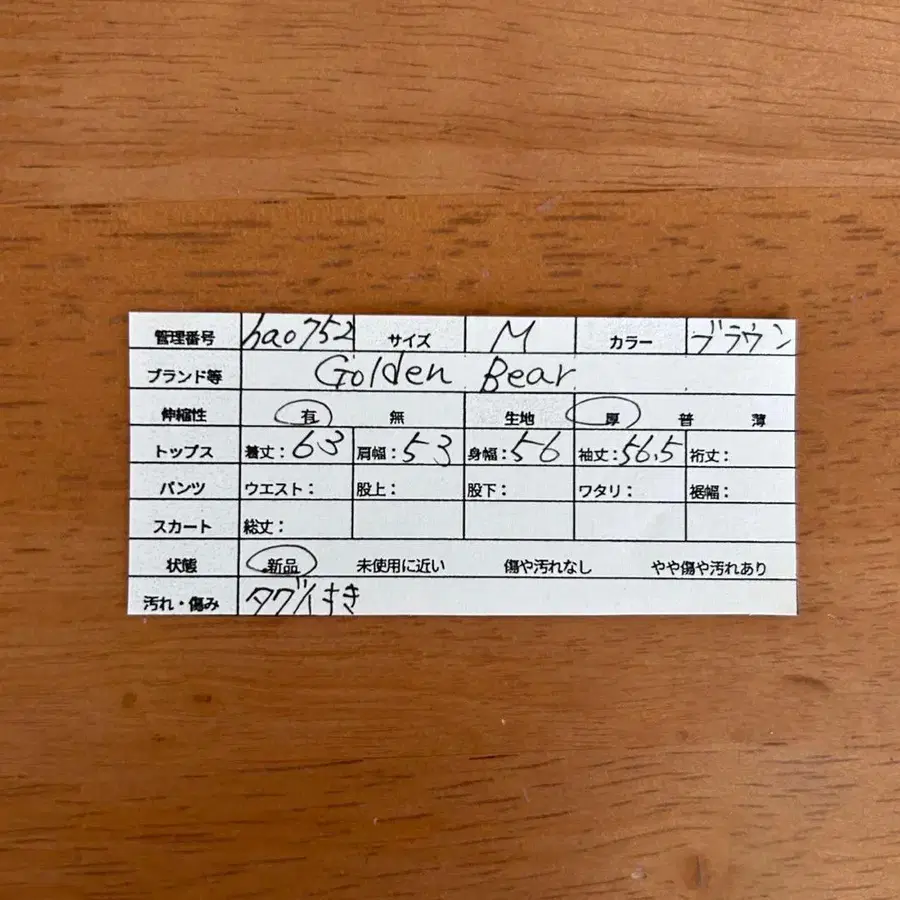 管理番号 hao752 サイズ M カラー ブラウン
ブランド等 Golden Bear
伸縮性 有 無 生地 厚 普 薄
トップス 着丈：63 肩幅：53 身幅：56 袖丈：56.5 裄丈：
パンツ ウエスト： 股上： 股下： ワタリ： 裾幅：
スカート 総丈：
状態 新品 未使用に近い 傷や汚れなし やや傷や汚れあり
汚れ・傷み タグ付き